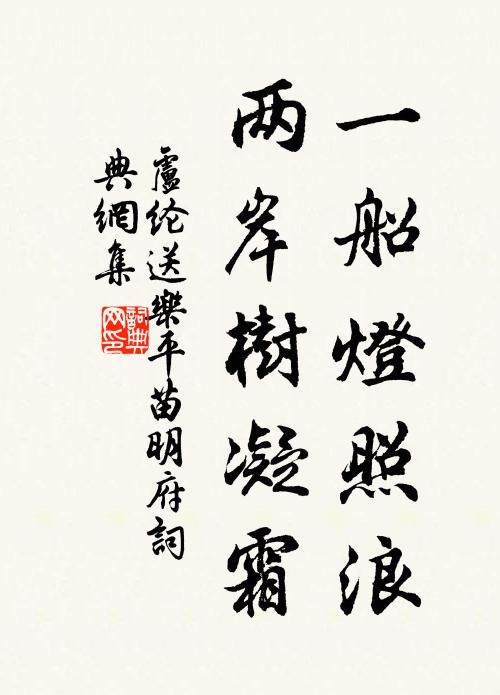 一船燈照浪
两岸樹凝霜
盧纶送樂平苗明府詞
典網集
詞典
网印